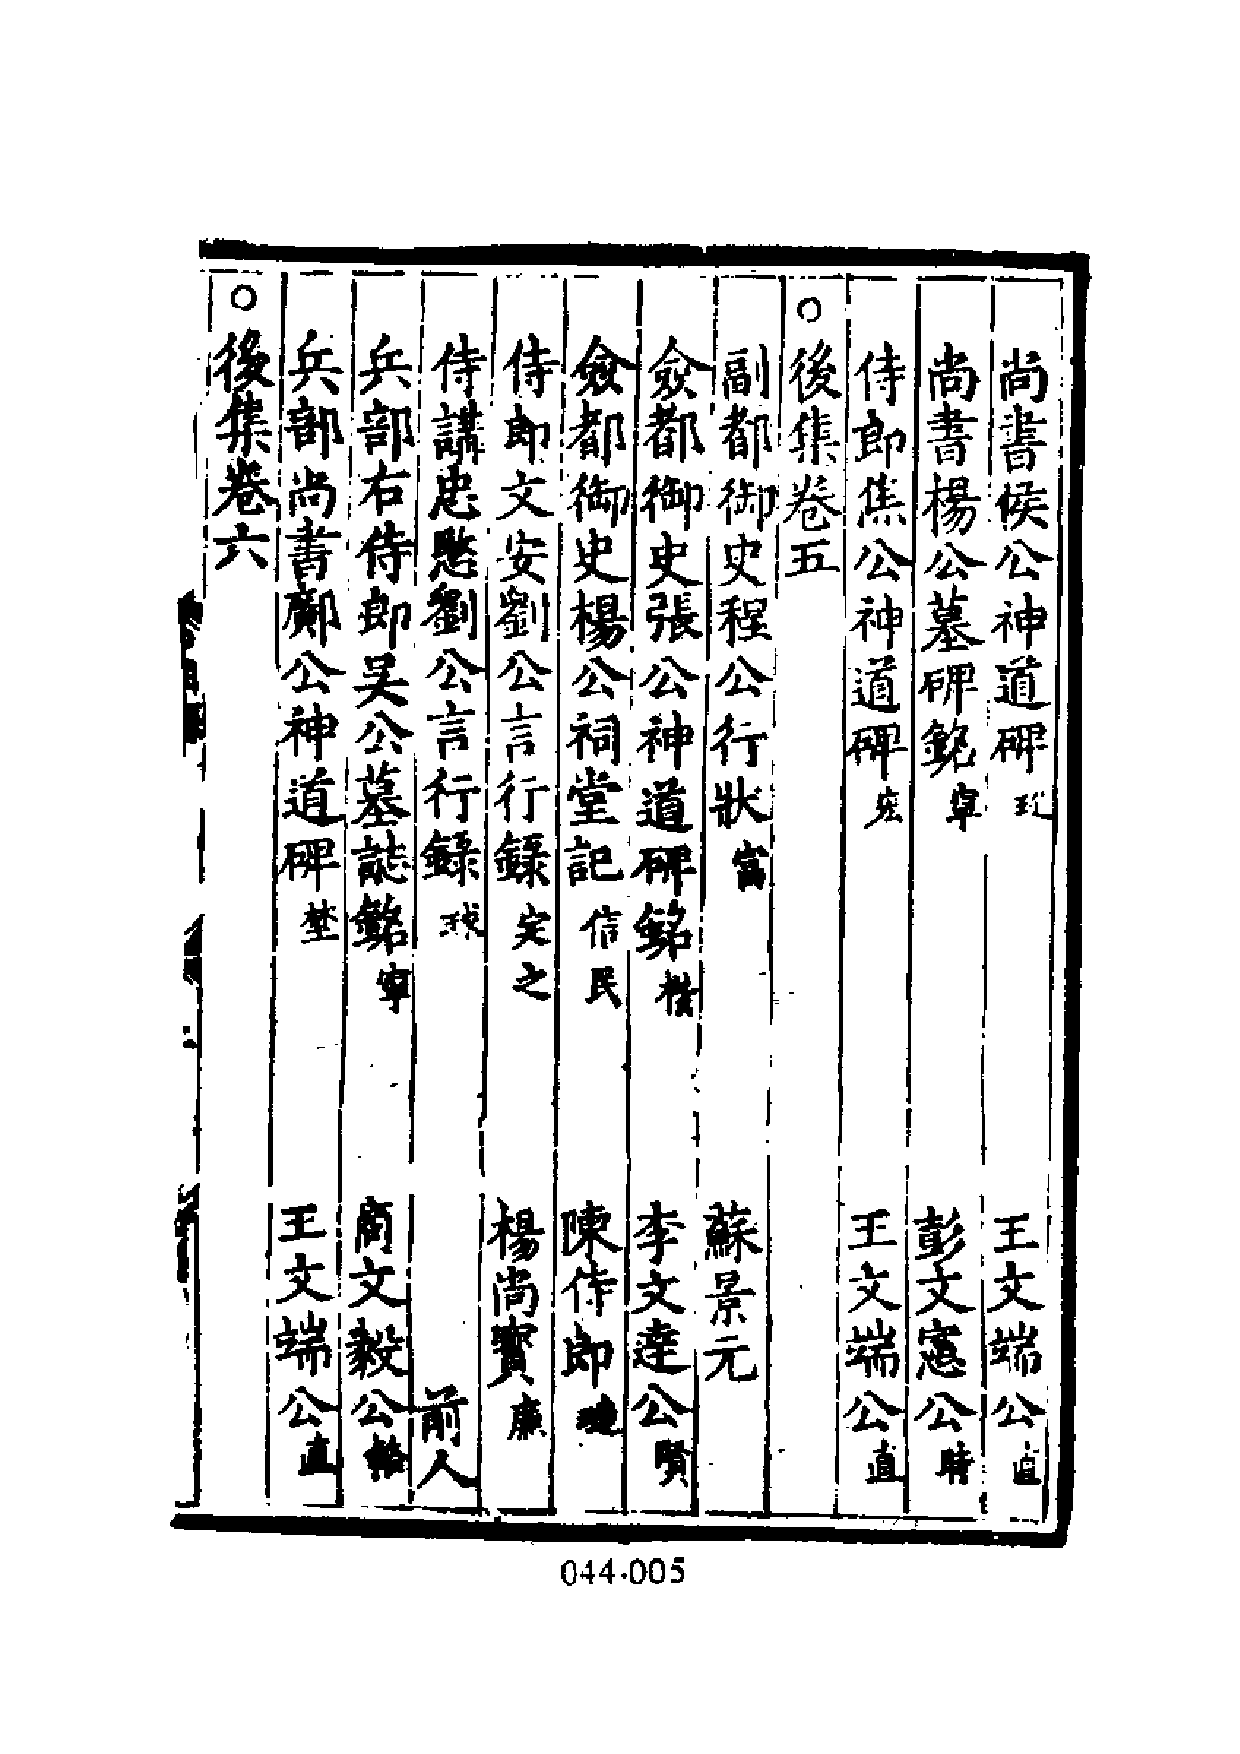 尚書侯公神道碑 璡 王文端公 直
尚書楊公墓碑銘 寧 彭文憲公 時
侍郎焦公神道碑 宏 王文端公 直
○後集卷五
副都御史程公行狀 富 蘇景元
僉都御史張公神道碑銘 楷 李文達公 賢
僉都御史楊公祠堂記 信民 陳侍郎 璉
侍郎文安劉公言行錄 定之 楊尚寶 廉
侍講忠愍劉公言行錄 球 前人
兵部右侍郎吳公墓誌銘 寧 商文毅公 輅
兵部尚書鄺公神道碑 埜 王文端公 直
○後集卷六
044-005